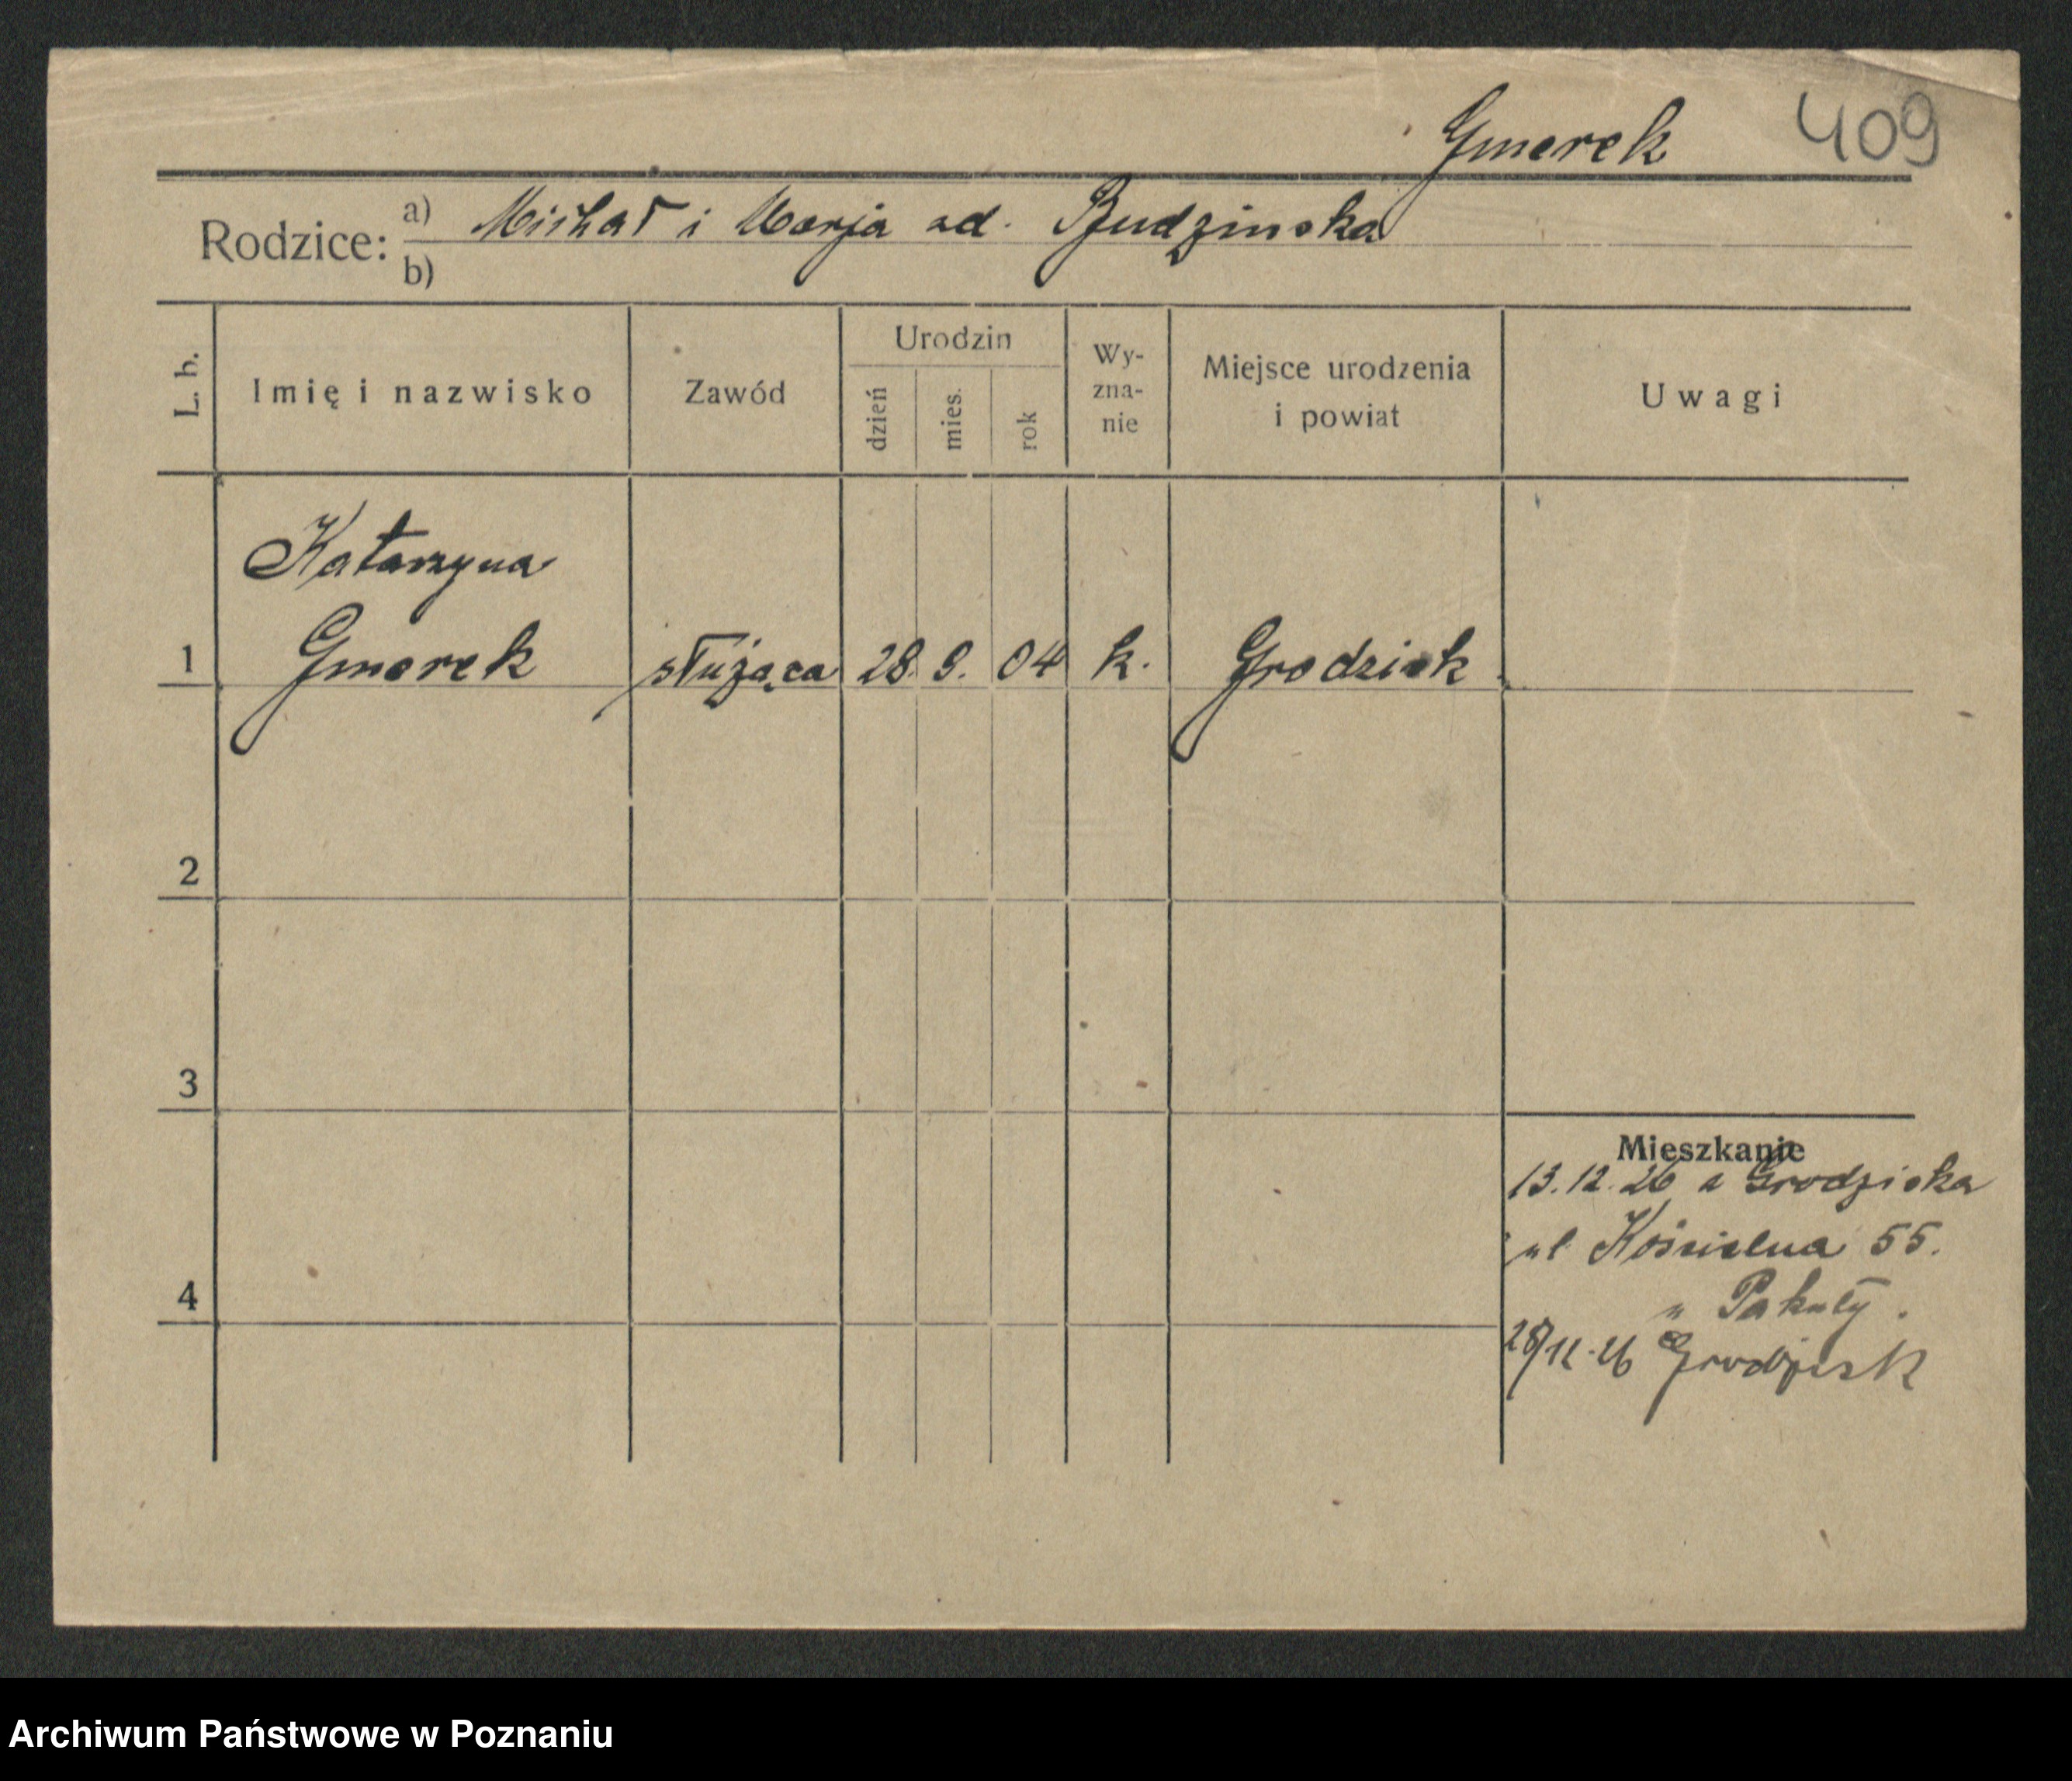 Gmerek 409
Rodzice: a) Michał i Marja ad. Budzinska
b)
L. b. Imię i nazwisko Zawód Urodzin dzień mies. rok Wy-zna-nie Miejsce urodzenia i powiat Uwagi
Katarzyna
1 Gmerek służąca 28. 9. 04 k. Grodzisk
2
3
Mieszkanie
13.12.26 z Grodziska
ul Kościelna 55.
4 " Pakuły.
28/12.26 Grodzisk
Archiwum Państwowe w Poznaniu